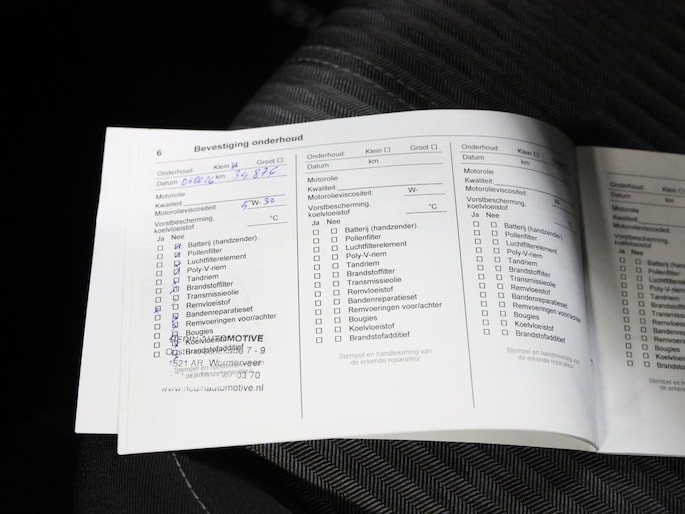 6 Bevestiging onderhoud
Onderhoud: Klein Groot
Datum km 34 876
Motorolie
Kwaliteit
Motorolieviscositeit: 5 W- 30
Vorstbescherming,
koelvloeistof °C
Ja Nee
Batterij (handzender)
Pollenfilter
Luchtfilterelement
Poly-V-riem
Tandriem
Brandstoffilter
Transmissieolie
Remvloeistof
Bandenreparatieset
Remvoeringen voor/achter
Bougies
Koelvloeistof
Brandstofadditief
AUTOMOTIVE
7 - 9
1521 AR Wormerveer
03 70
Stempel en
Onderhoud: Klein Groot
Datum km
Motorolie
Kwaliteit:
Motorolieviscositeit: W-
Vorstbescherming,
koelvloeistof °C
Ja Nee
Batterij (handzender)
Pollenfilter
Luchtfilterelement
Poly-V-riem
Tandriem
Brandstoffilter
Transmissieolie
Remvloeistof
Bandenreparatieset
Remvoeringen voor/achter
Bougies
Koelvloeistof
Brandstofadditief
Stempel en handtekening van
de erkende reparateur
Onderhoud: Klein Groot
Datum km
Motorolie
Kwaliteit:
Motorolieviscositeit: W-
Vorstbescherming,
koelvloeistof °C
Ja Nee
Batterij (handzender)
Pollenfilter
Luchtfilterelement
Poly-V-riem
Tandriem
Brandstoffilter
Transmissieolie
Remvloeistof
Bandenreparatieset
Remvoeringen voor/achter
Bougies
Koelvloeistof
Brandstofadditief
Stempel en handtekening van
de erkende reparateur
Onderhoud:
Datum
Motorolie
Kwaliteit:
Motorolieviscositeit:
Vorstbescherming,
koelvloeistof
Ja Nee
Batterij (hand
Pollenfilter
Poly-V-riem
Tandriem
Brandstoffilter
Transmissie
Remvloeistof
Bandenrepara
Remvoering
Bougies
Koelvloeistof
Brandstofad
Stempel en hand
de erkende